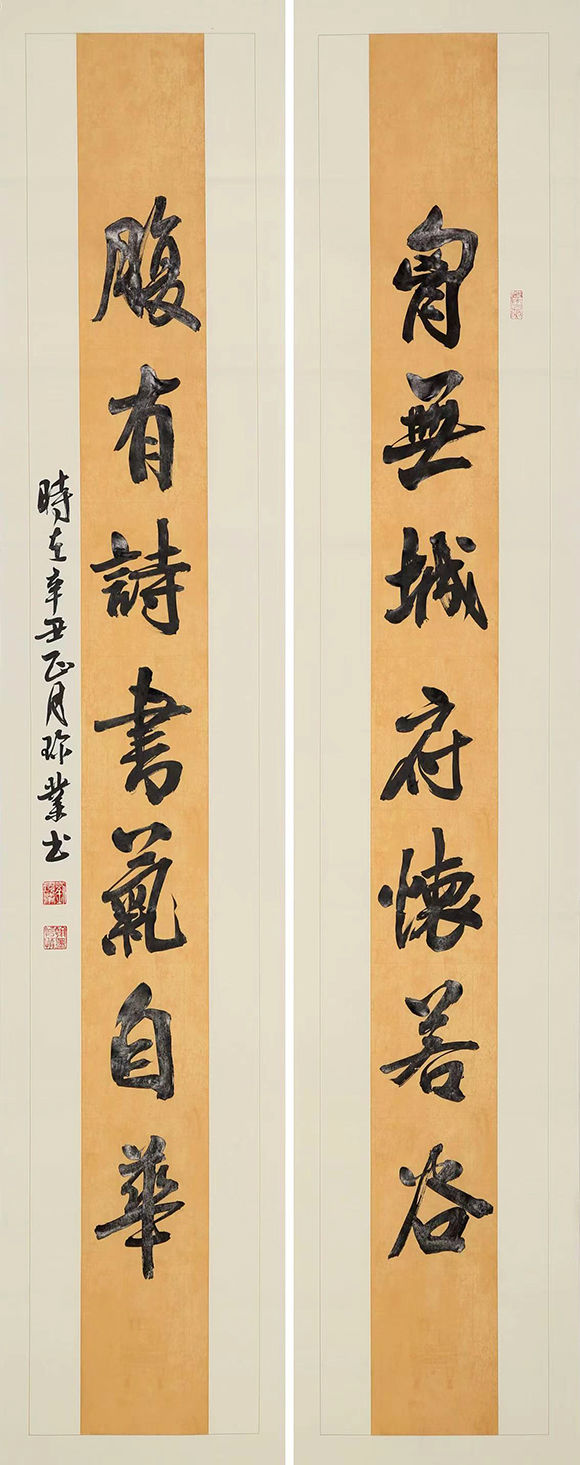 胷無城府懷若谷
腹有詩書氣自華
時在辛丑正月珍業书